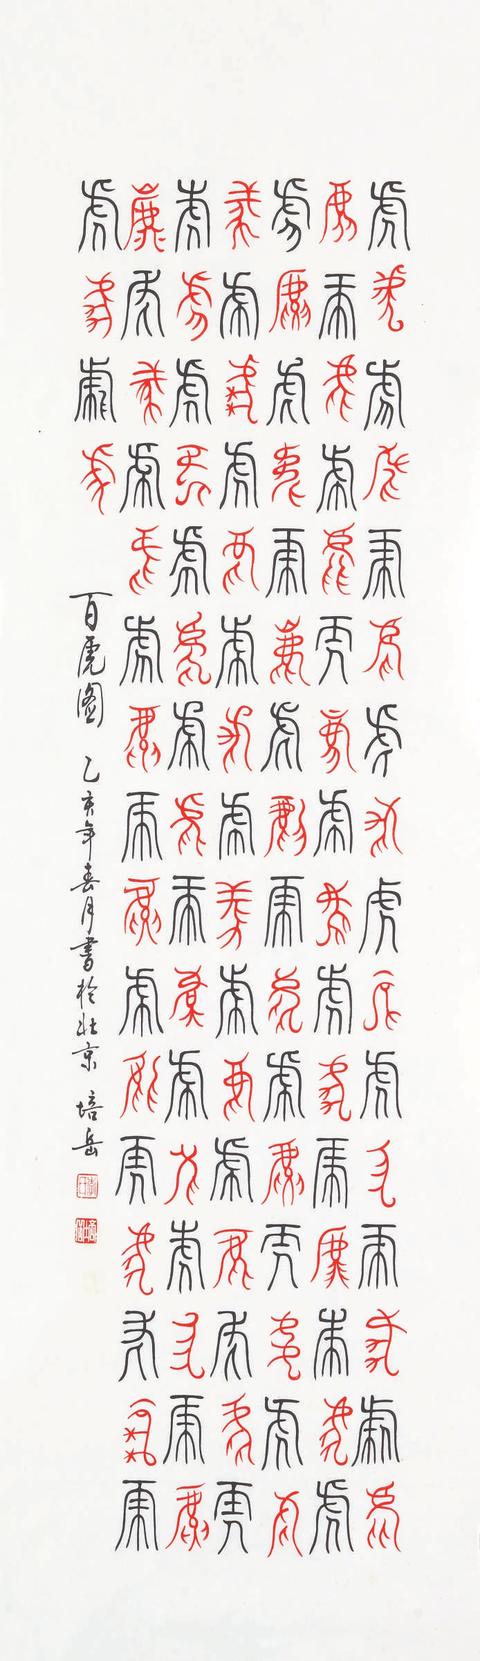 虎虎虎虎虎虎虎虎虎虎虎虎虎虎虎虎
虎虎虎虎虎虎虎虎虎虎虎虎虎虎虎虎
虎虎虎虎虎虎虎虎虎虎虎虎虎虎虎虎
虎虎虎虎虎虎虎虎虎虎虎虎虎虎虎虎
虎虎虎虎虎虎虎虎虎虎虎虎虎虎虎虎
虎虎虎虎虎虎虎虎虎虎虎虎虎虎虎虎
虎虎虎虎
百虎图 乙亥年春月書於北京 培岳